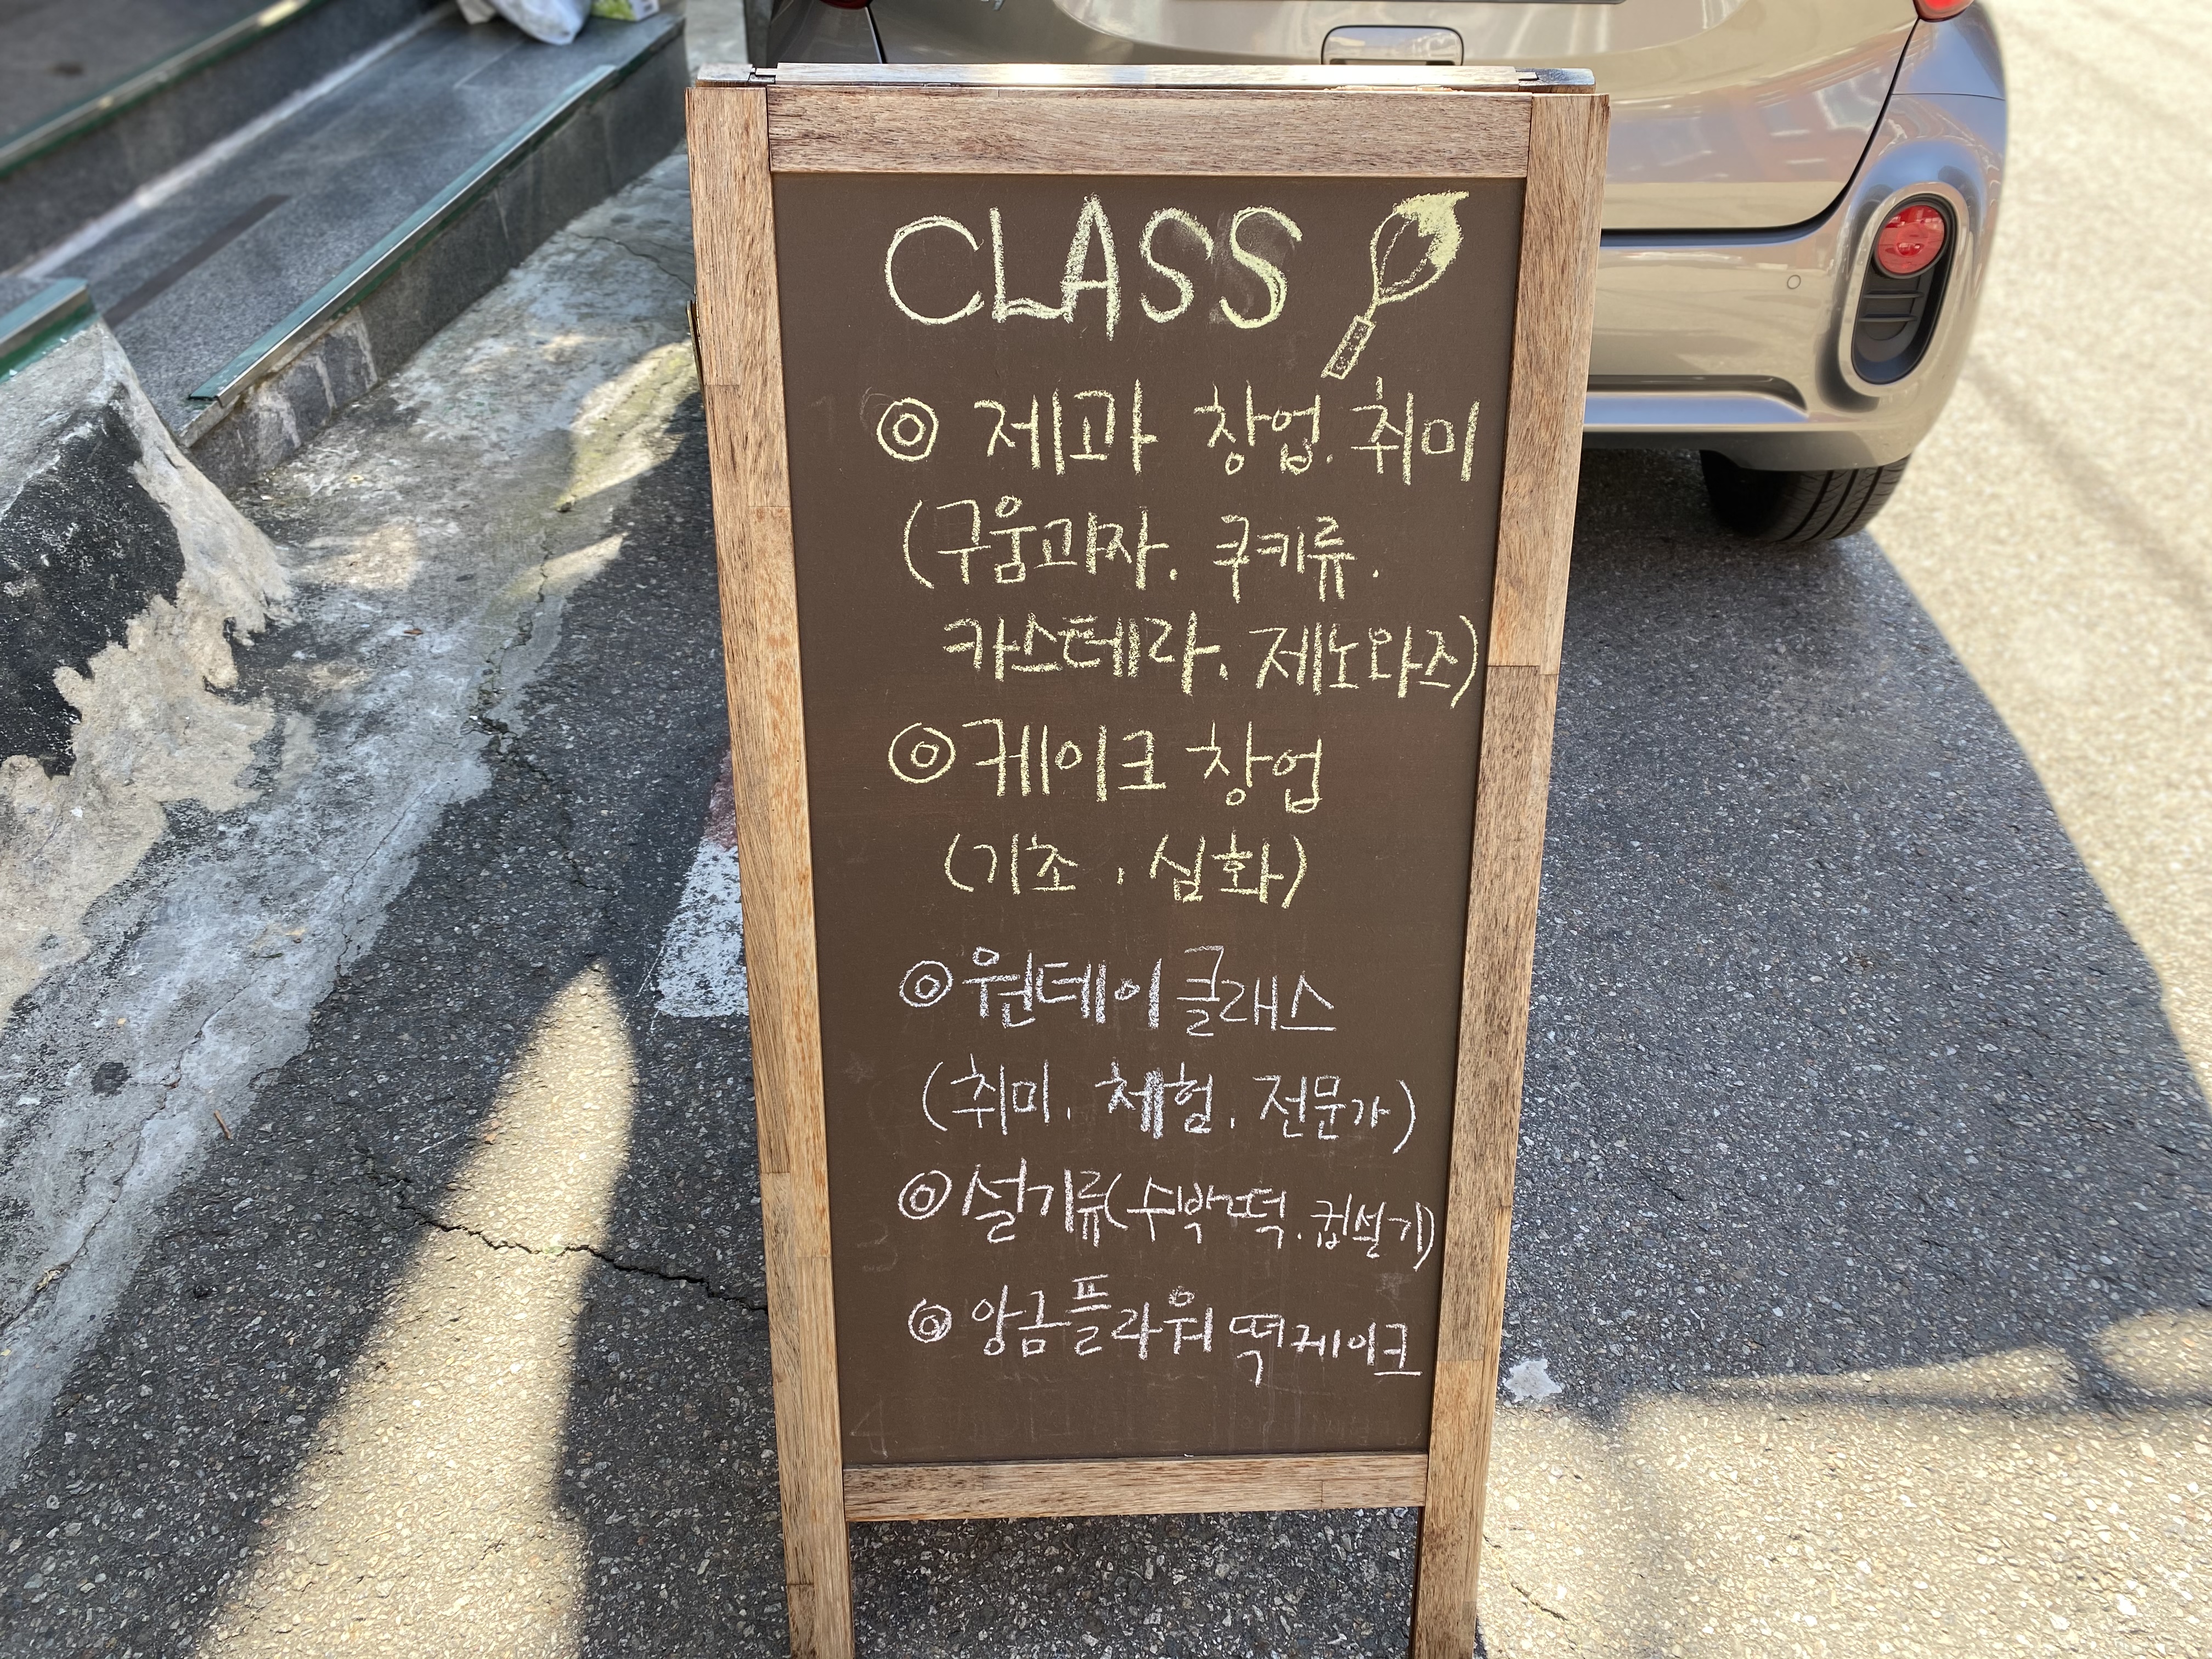 CLASS
◎ 제과 창업. 취미
(구움과자. 쿠키류.
카스테라. 제노와즈)
◎ 케이크 창업
(기초, 심화)
◎ 원데이 클래스
(취미. 체험. 전문가)
◎ 설기류(수박떡. 컵설기)
◎ 앙금플라워 떡케이크